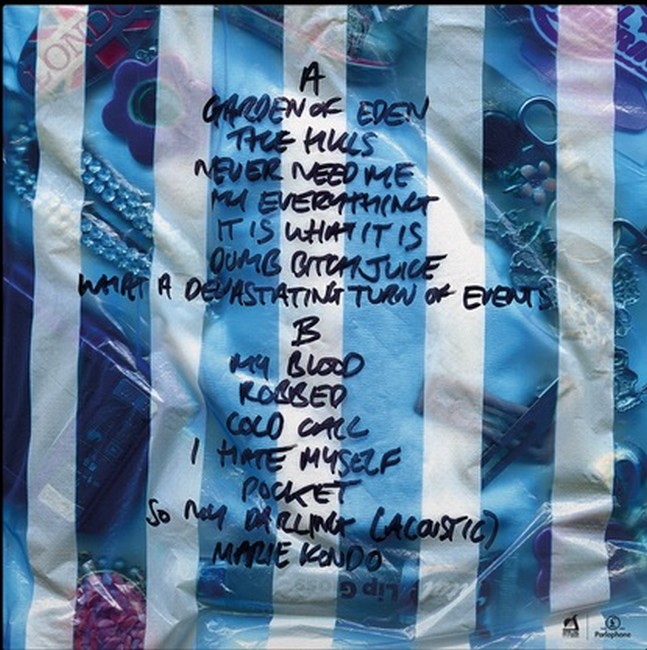 LONDON
A
GARDEN OF EDEN
THE HILLS
NEVER NEED ME
MY EVERYTHING
IT IS WHAT IT IS
DUMB BITCH JUICE
WHAT A DEVASTATING TURN OF EVENTS
B
MY BLOOD
ROBBED
COLD CALL
I HATE MYSELF
POCKET
SO MY DARLING (ACOUSTIC)
MARIE KONDO
Lip Gloss
Parlophone